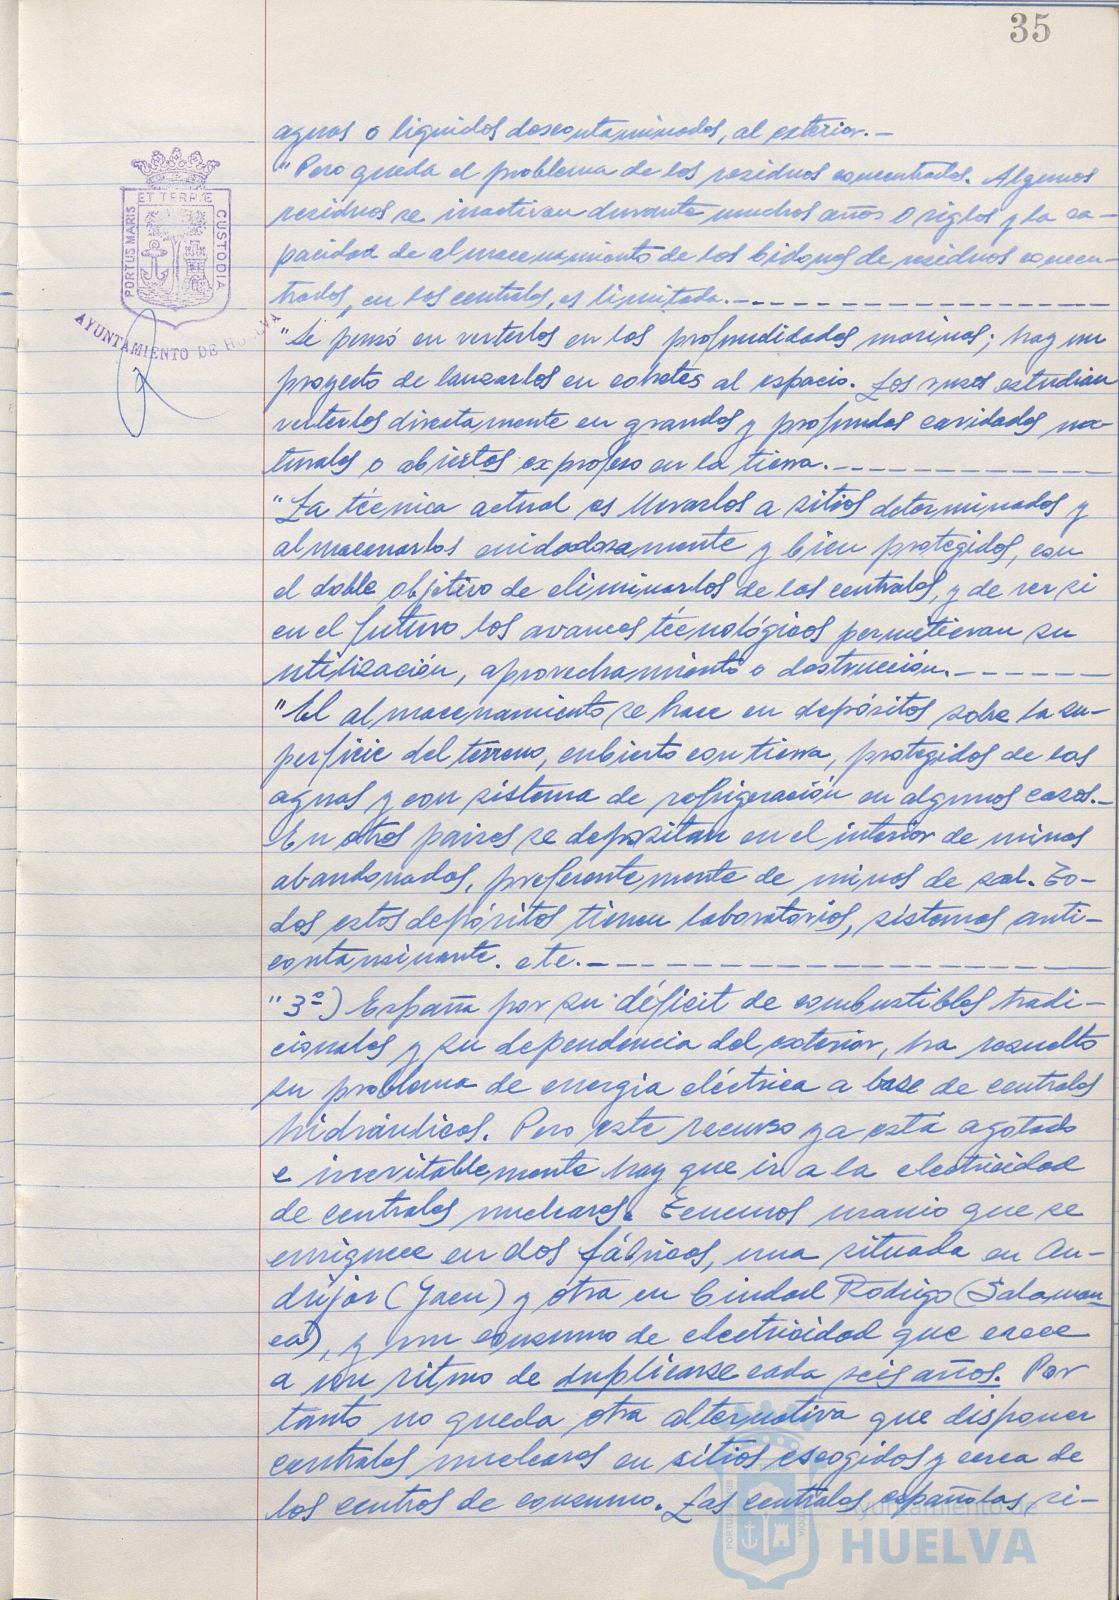 35
PORTUS MARIS
ET TERRÆ
CUSTODIA
AYUNTAMIENTO DE HUELVA
aguas o liquidos descontaminados, al exterior.-
"Pero queda el problema de los residuos concentrados. Algunos
residuos se inactivan durante muchos años o siglos y la ca-
pacidad de almacenamiento de los bidones de residuos concen-
trados, en las centrales, es limitada.-
"Se pensó en verterlos en las profundidades marinas; hay un
proyecto de lanzarlos en cohetes al espacio. Los rusos estudian
verterlos directamente en grandes y profundas cavidades na-
turales o abiertas exprofeso en la tierra.-
"La técnica actual es llevarlos a sitios determinados y
almacenarlos cuidadosamente y bien protegidos, con
el doble objetivo de eliminarlos de las centrales, y de ver si
en el futuro los avances técnológicos permitieran su
utilización, aprovechamiento o destrucción.-
"El almacenamiento se hace en depósitos sobre la su-
perficie del terreno, cubierto con tierra, protegidos de las
aguas y con sistema de refrigeración en algunos casos.-
En otros paises se depositan en el interior de minas
abandonadas, preferentemente de minas de sal. To-
dos estos depósitos tienen laboratorios, sistemas anti-
contaminante. etc.-
"3º) España por su déficit de combustibles tradi-
cionales y su dependencia del exterior, ha resuelto
su problema de energia eléctrica a base de centrales
hidráulicas. Pero este recurso ya está agotado
e inevitablemente hay que ir a la electricidad
de centrales nucleares. Tenemos uranio que se
enriquece en dos fábricas, una situada en An-
drijar (Jaen) y otra en Ciudad Rodrigo (Salaman-
ca), y un consumo de electricidad que crece
a un ritmo de duplicarse cada seis años. Por
tanto no queda otra alternativa que disponer
centrales nucleares en sitios escogidos y cerca de
los centros de consumo. Las centrales españolas si-
Ayuntamiento de
HUELVA